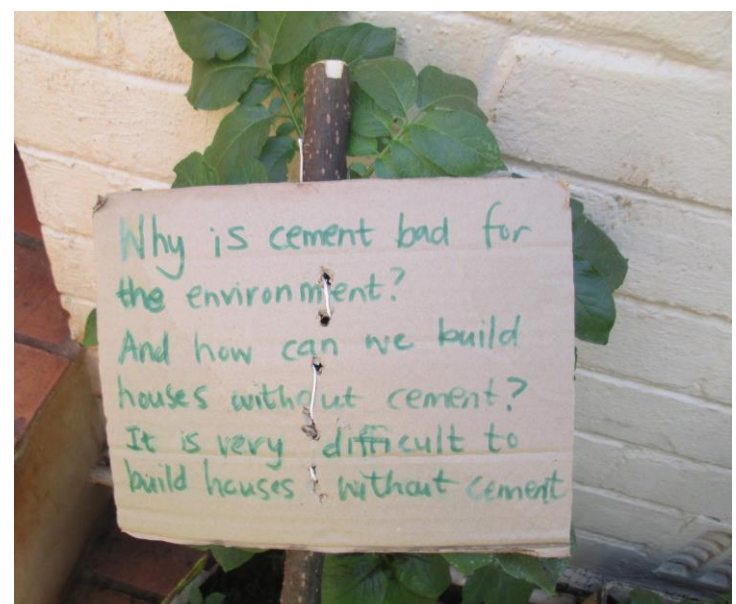 Why is cement bad for
the environment?
And how can we build
houses without cement?
It is very difficult to
build houses without cement